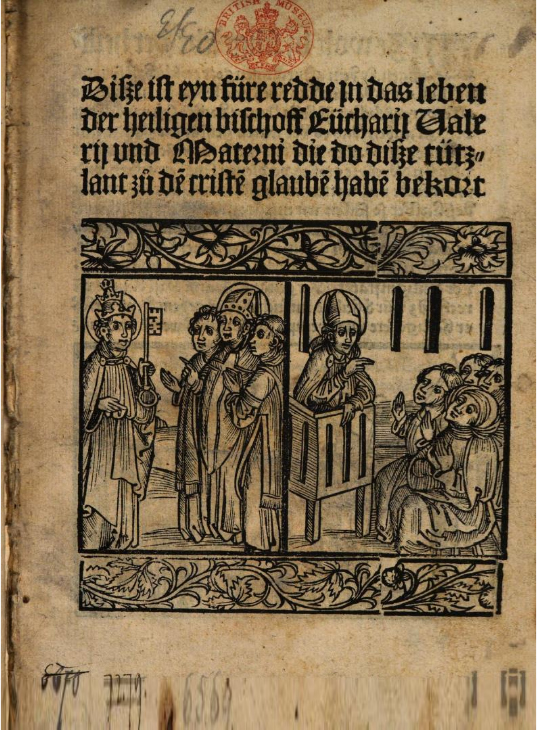 BRITISH MUSEUM
Disze ist eyn füre redde jn das leben
der heiligen bischoff Eücharij Vale
rij vnd Materni die do disze tütz⸗
lant zů dē cristē glaubē habē bekort